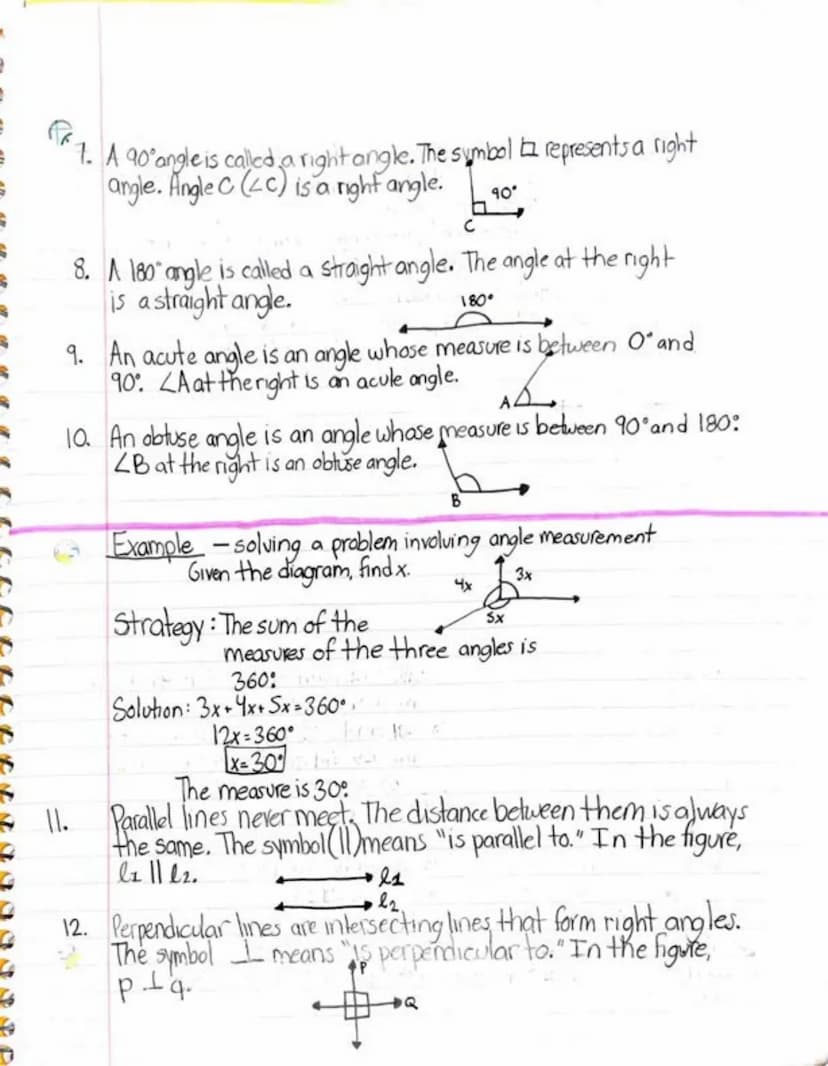 7. A 90° angle is called a right angle. The symbol ∟ represents a right
angle. Angle C (∠C) is a right angle.
90°
C
8. A 180° angle is called a straight angle. The angle at the right
is a straight angle.
180°
9. An acute angle is an angle whose measure is between 0° and
90°. ∠A at the right is an acule angle.
A
10. An obtuse angle is an angle whose measure is between 90° and 180°.
∠B at the right is an obtuse angle.
B
Example - solving a problem involving angle measurement
Given the diagram, find x.
4x 3x
5x
Strategy: The sum of the
measures of the three angles is
360°.
Solution: 3x+4x+5x=360°
12x=360°
x=30°
The measure is 30°.
11. Parallel lines never meet. The distance between them is always
the same. The symbol (||) means "is parallel to." In the figure,
l1 || l2.
l1
l2
12. Perpendicular lines are intersecting lines that form right angles.
The symbol ⊥ means "is perpendicular to." In the figure,
p ⊥ q.
P
Q